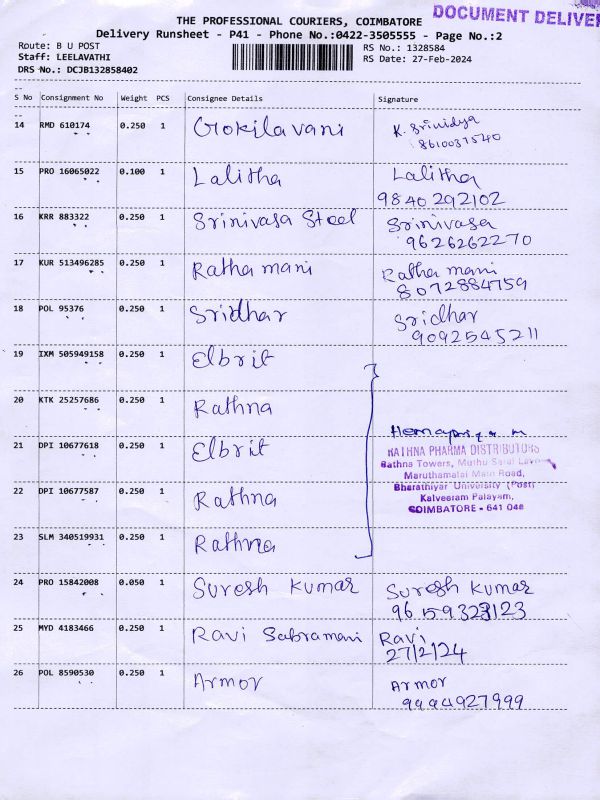 DOCUMENT DELIVER
THE PROFESSIONAL COURIERS, COIMBATORE
Delivery Runsheet - P41 - Phone No.:0422-3505555 - Page No.:2
Route: B U POST
RS No.: 1328584
Staff: LEELAVATHI
RS Date: 27-Feb-2024
DRS No.: DCJB132858402
S No Consignment No Weight PCS Consignee Details Signature
14 RMD 610174 0.250 1 Gokilavani K. Srinidya
8610037540
15 PRO 16065022 0.100 1 Lalitha Lalitha
9840292102
16 KRR 883322 0.250 1 Srinivasa Steel Srinivasa
9626262270
17 KUR 513496285 0.250 1 Ratha mani Ratha mani
8072884759
18 POL 95376 0.250 1 Sridhar Sridhar
9092545211
19 IXM 505949158 0.250 1 Elbrit
20 KTK 25257686 0.250 1 Rathna
21 DPI 10677618 0.250 1 Elbrit
RATHNA PHARMA DISTRIBUTORS
Rathna Towers, Muthu
Maruthamalai Main Road,
22 DPI 10677587 0.250 1 Rathna
Bharathiyar University (Post)
Kalveeram Palayam,
COIMBATORE - 641 046
23 SLM 340519931 0.250 1 Rathna
24 PRO 15842008 0.050 1 Suresh Kumar Suresh Kumar
96159323123
25 MYD 4183466 0.250 1 Ravi Sabramani Ravi
27/2/24
26 POL 8590530 0.250 1 Armor Armor
9994927999